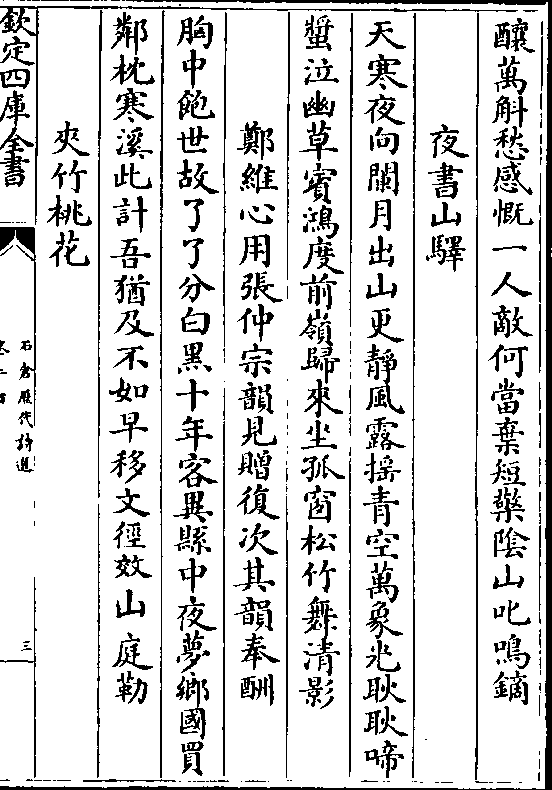 釀萬斛愁感慨一人敵何當棄短檠陰山叱鳴鏑
夜書山驛
天寒夜向闌月出山更靜風露揺青空萬象光耿耿啼
螀泣幽草賓鴻度前嶺歸來坐孤窗松竹舞清影
鄭維心用張仲宗韻見贈復次其韻奉酬
胸中飽世故了了分白黒十年客異縣中夜夢鄉國買
鄰枕寒溪此計吾猶及不如早移文徑效山庭勒
夾竹桃花
欽定四庫全書
石倉歴代詩選
三